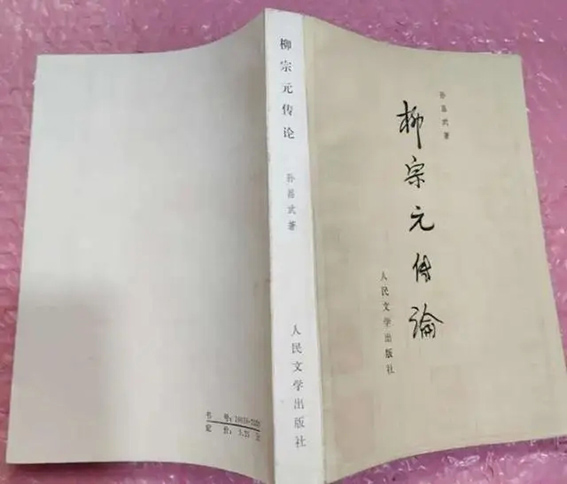 柳宗元传论
孙昌武著
人民文学出版社
孙昌武著
柳宗元传论
人民文学出版社
书号：
定价：